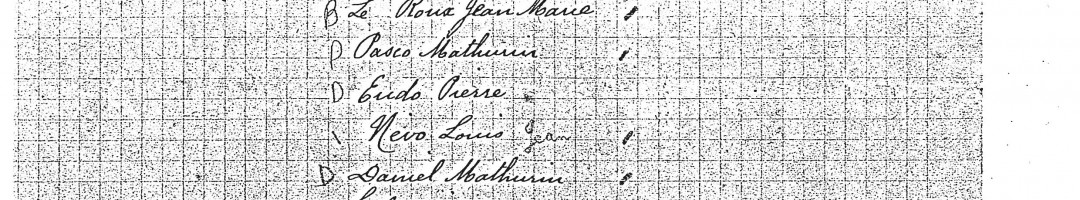 B Le Roux Jean Marie
P Pasco Mathurin
D Eudo Pierre
Nevo Louis Jean
D Daniel Mathurin